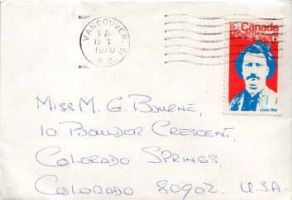 VANCOUVER
1970
B.C.
6 Canada
Louis Riel
MISS M. G. BOURNE,
10 BOULDER CRESCENT,
COLORADO SPRINGS,
COLORADO 80902. U.S.A.